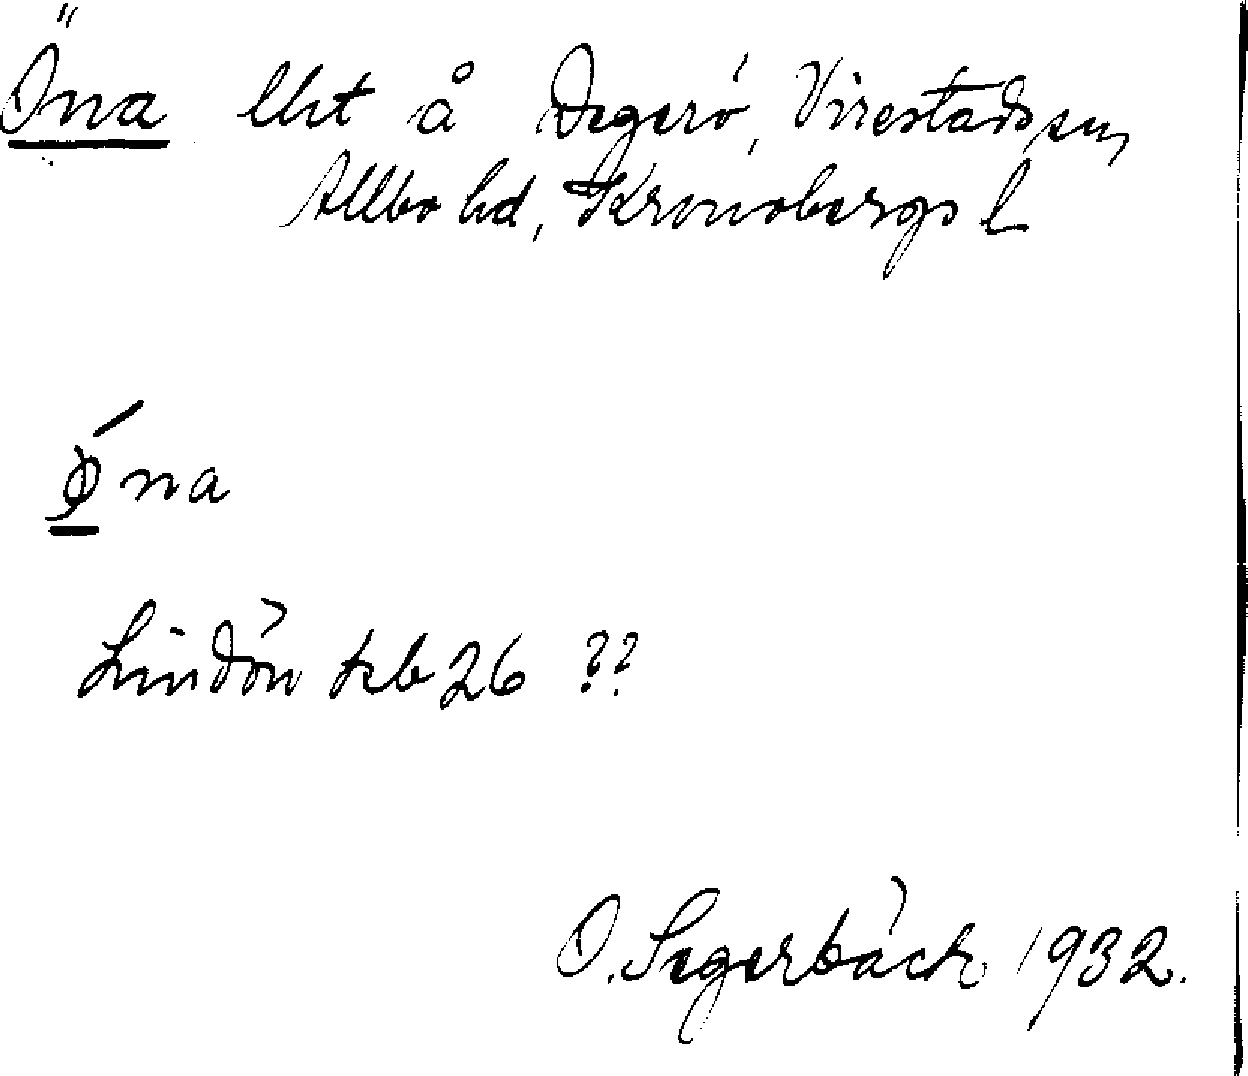 Öna lht å Degerö, Virestads sn,
Allbo hd, Kronobergs l
Ǿna
Lindön kb 26 ??
O. Segerbäck 1932.